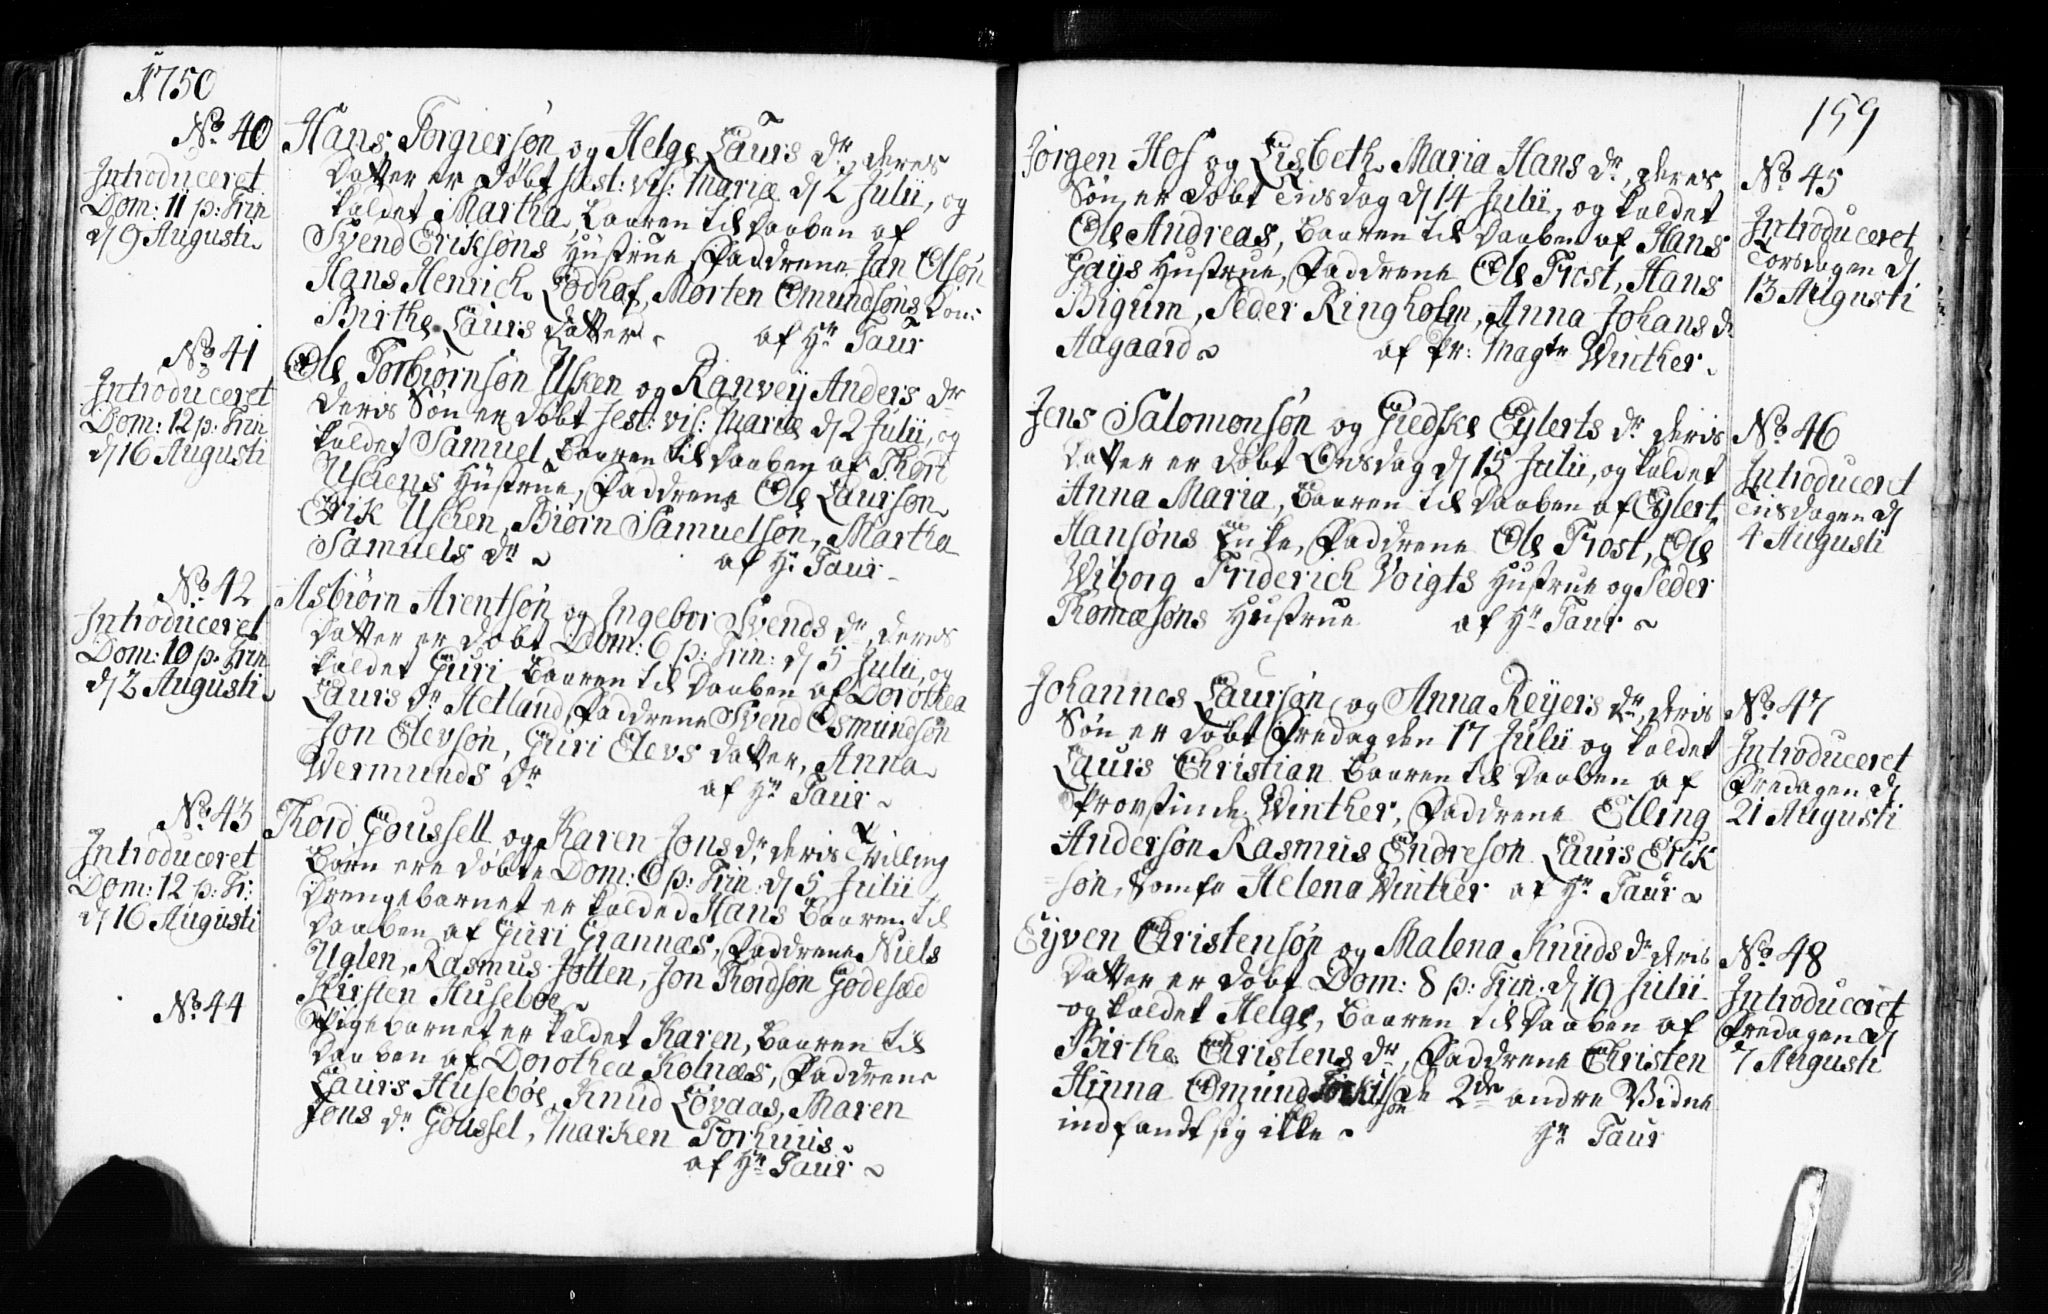 1750
No. 40
Introduceret
Dom: 11 p: Trin
d 9 Augusti
Hans Torgiersøn og Helge Laurs dr, deres
Datter er Døbt fest: vis: Mariæ d 2 Julii, og
kaldet Martha, Baaren til Daaben af
Svend Eriksøns Hustrue, Faddrene Jan Olsøn
Hans Henrich Lodhof, Morten Omundsøns
Birthe Laurs Datter af Hr Taur
No. 41
Introduceret
Dom: 12 p: Trin
d 16 Augusti
Ole Torbiørnsøn Usken og Ranveij Anders dr
deris Søn er døbt fest: vis: Mariæ d 2 Julii, og
kaldet Samuel, Baaren til Daaben af Thort
Uskens Hustrue, Faddrene Ole Laursøn
Erik Usken, Biørn Samuelsøn, Martha
Samuels dr af Hr Taur
No. 42
Introduceret
Dom: 10 p: Trin
d 2 Augusti
Asbiørn Arentsøn og Ingebor Svends dr, deres
Datter er døbt Dom: 6 p: Trin: d 5 Julii, og
kaldet Guri, Baaren til Daaben af Dorothea
Laurs dr Hetland, Faddrene Svend Osmundsøn
Jon Elevsøn, Guri Elevs Datter, Anna
Wermunds dr af Hr Taur
No. 43
Introduceret
Dom: 12 p: Tr:
d 16 Augusti
Thord Goussell og Karen Jons dr, deris Tvilling
Børn ere døbte Dom: 6 p: Trin: d 5 Julii
Drengebarnet er kalded Hans Baaren til
Daaben af Guri Grannæs, Faddrene Niels
Uglen, Rasmus Jotten, Jon Thordsøn Godesæd
Kirsten Huseboe
No. 44
Pigebarnet er kaldet Karen, Baaren til
Daaben af Dorothea Kolnæs, Faddrene
Laurs Huseboe, Knud Lovaas, Maren
Jons dr Goussel, Marken Torhuus
af Hr Taur
159
Jørgen Hof og Lisbeth Maria Hans dr, deres
Søn er døbt Tirsdag d 14 Julii, og kaldet
Ole Andreas, Baaren til Daaben af Hans
Gays Hustrue, Faddrene Ole Frost, Hans
Bigum, Peder Ringholm, Anna Johans dr
Aagaard af Pr: Magtr Winther
No. 45
Introduceret
Torsdagen d
13 Augusti
Jens Salomonsøn og Giedske Eylerts dr deris
Datter er døbt Onsdag d 15 Julii, og kaldet
Anna Maria, Baaren til Daaben af Eylert
Hansøns Enke, Faddrene Ole Frost, Ole
Wiborg Friderich Voigts Hustrue og Peder
Thomæsøns Hustrue af Hr Taur
No. 46
Introduceret
Tirsdagen d
4 Augusti
Johannes Laursøn og Anna Reyers dr, deris
Søn er døbt Fredag den 17 Julii og kaldet
Laurs Christian Baaren til Daaben af
Provstinde Winther, Faddrene Elling
Andersøn Rasmus Endresøn Laurs Erik
søn, Jomfr Helena Winther af Hr Taur
No. 47
Introduceret
Fredagen d
21 Augusti
Eyven Christensøn og Malena Knuds dr deris
Datter er døbt Dom: 8 p: Trin: d 19 Julii
og kaldet Helge, Baaren til Daaben af
Birthe Christens dr, Faddrene Christen
Hinna Omund de 2de andre Vidne
indfandt sig ikke Hr Taur
No. 48
Introduceret
Fredagen d
7 Augusti